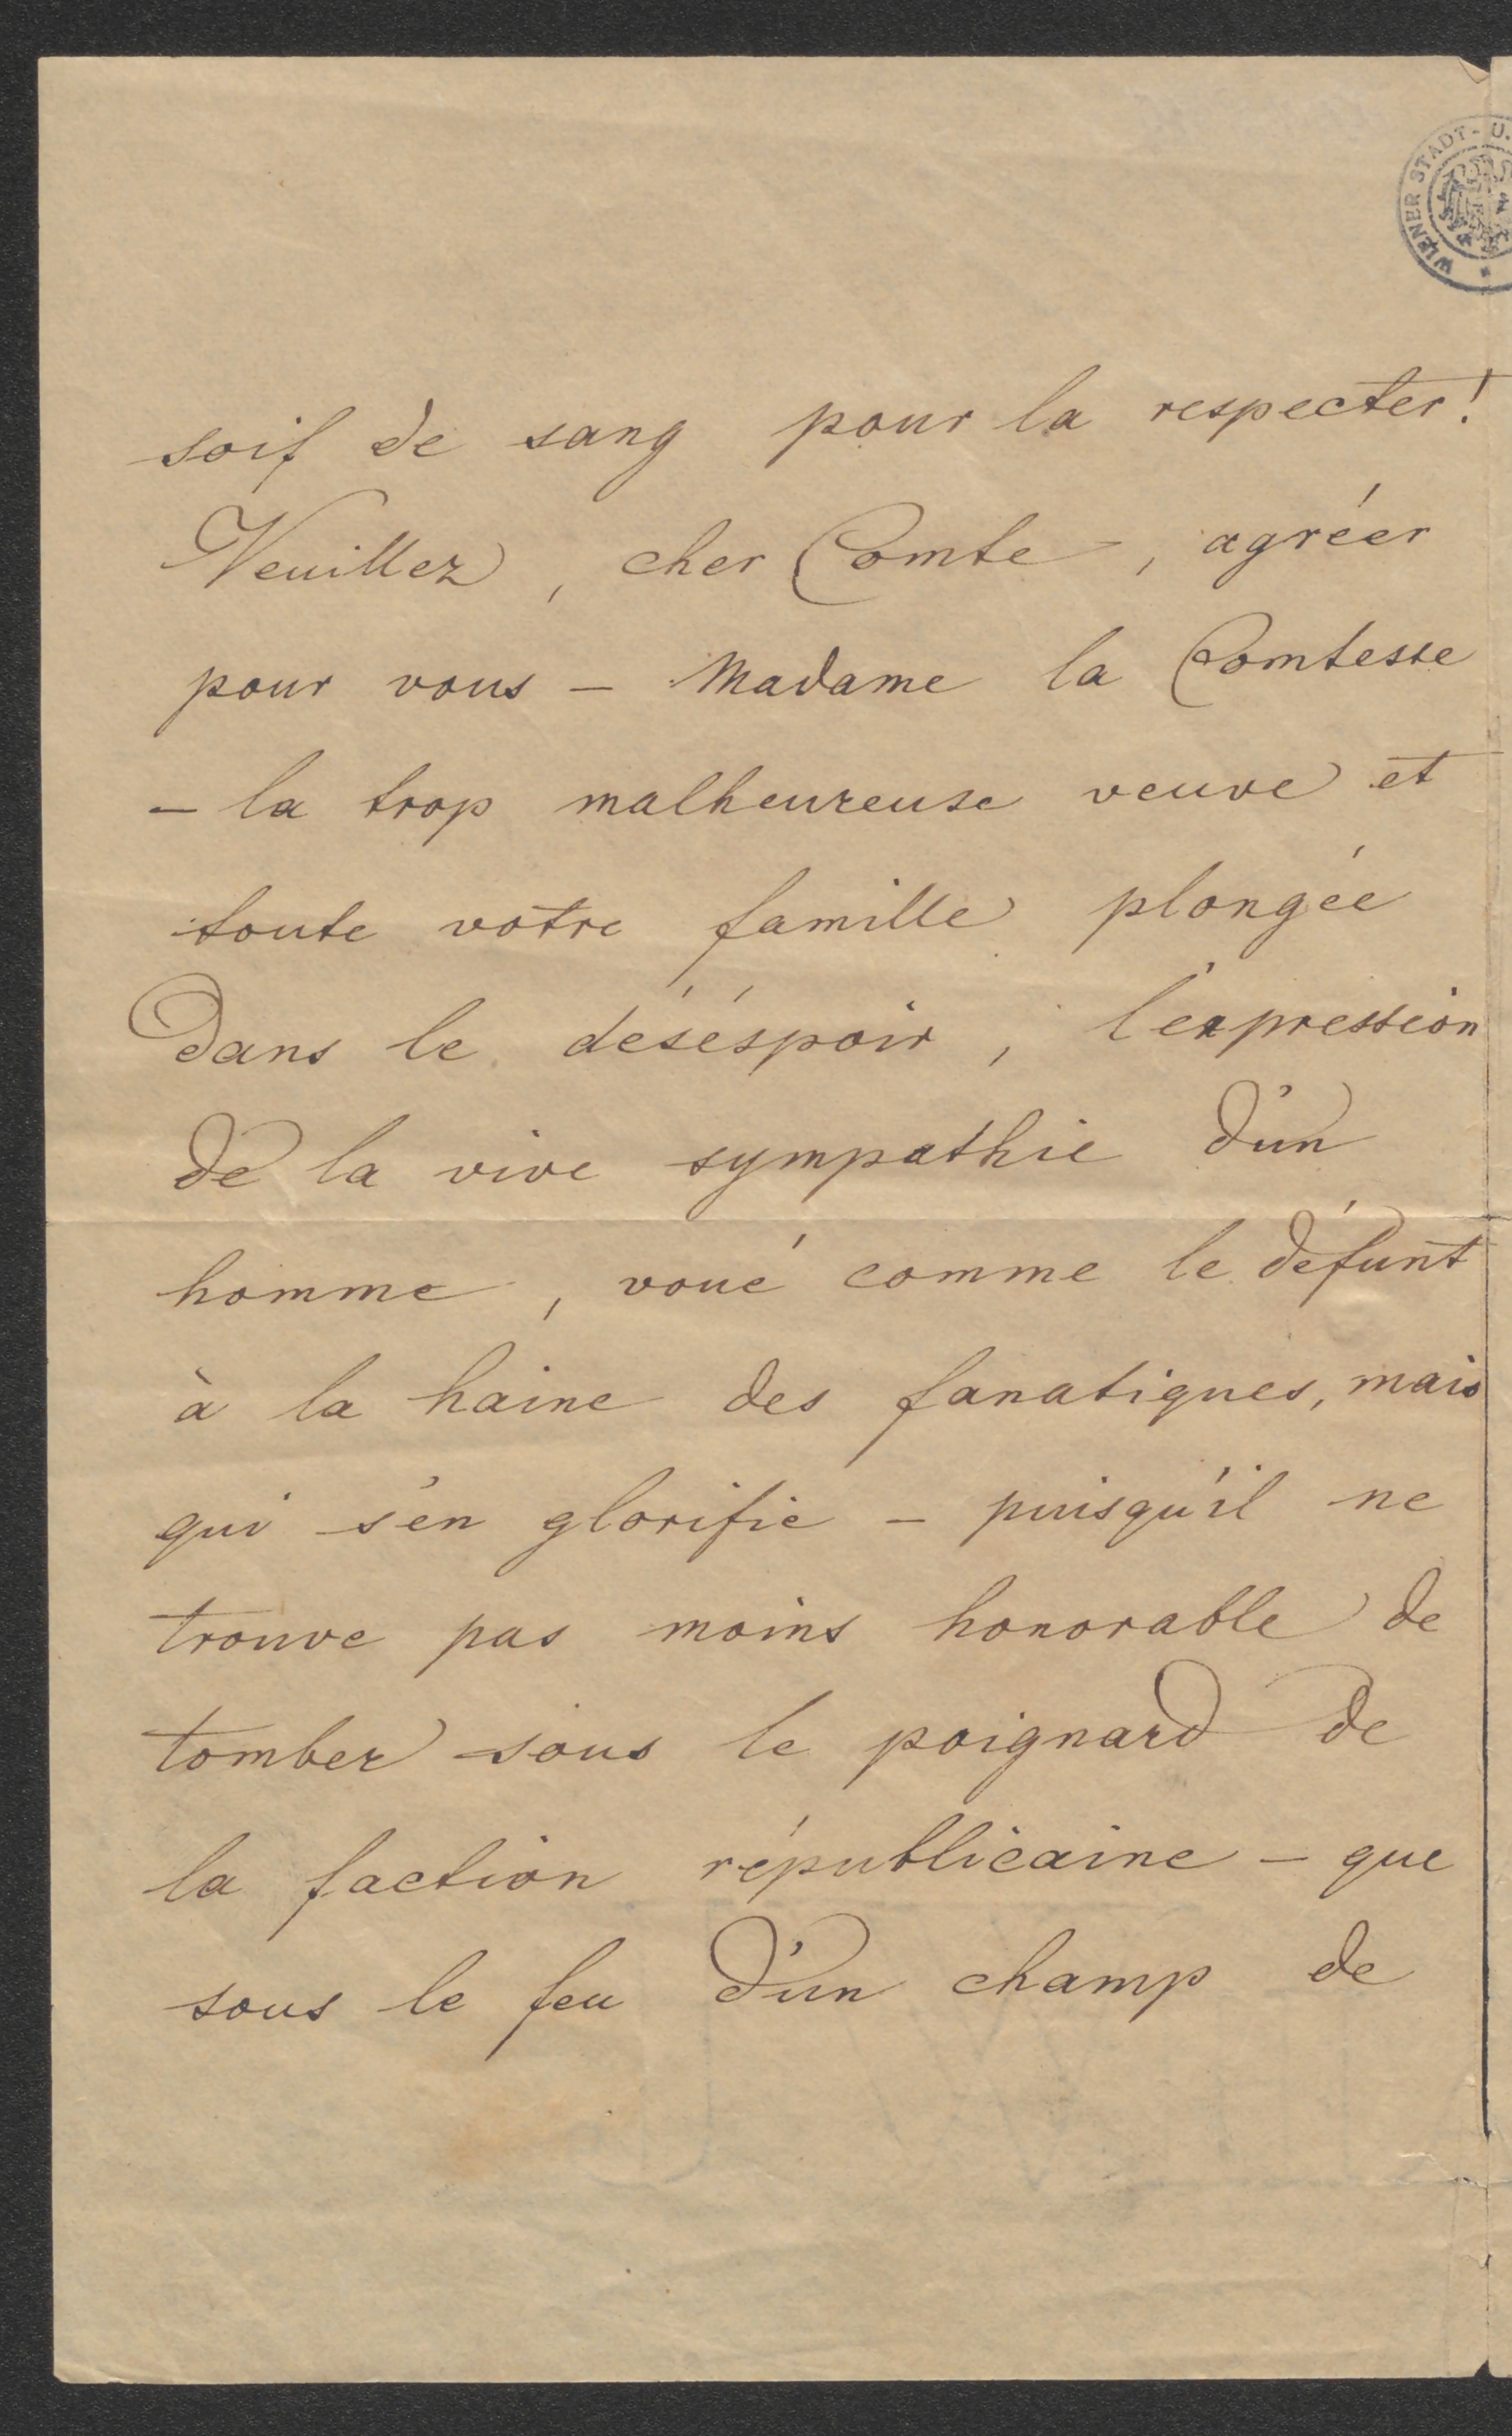 WIENER STADT- U.
soif de sang pour la respecter!
Veuillez, cher Comte, agréer
pour vous – Madame la Comtesse
– la trop malheureuse veuve et
toute votre famille plongée
Dans le déséspoir, l'expression
de la vive sympathie d'un
homme, voué comme le défunt
à la haine des fanatiques, mais
qui s'en glorifie – puisqu'il ne
trouve pas moins honorable de
tomber sous le poignard de
la faction républicaine – que
sous le feu d'un champ de